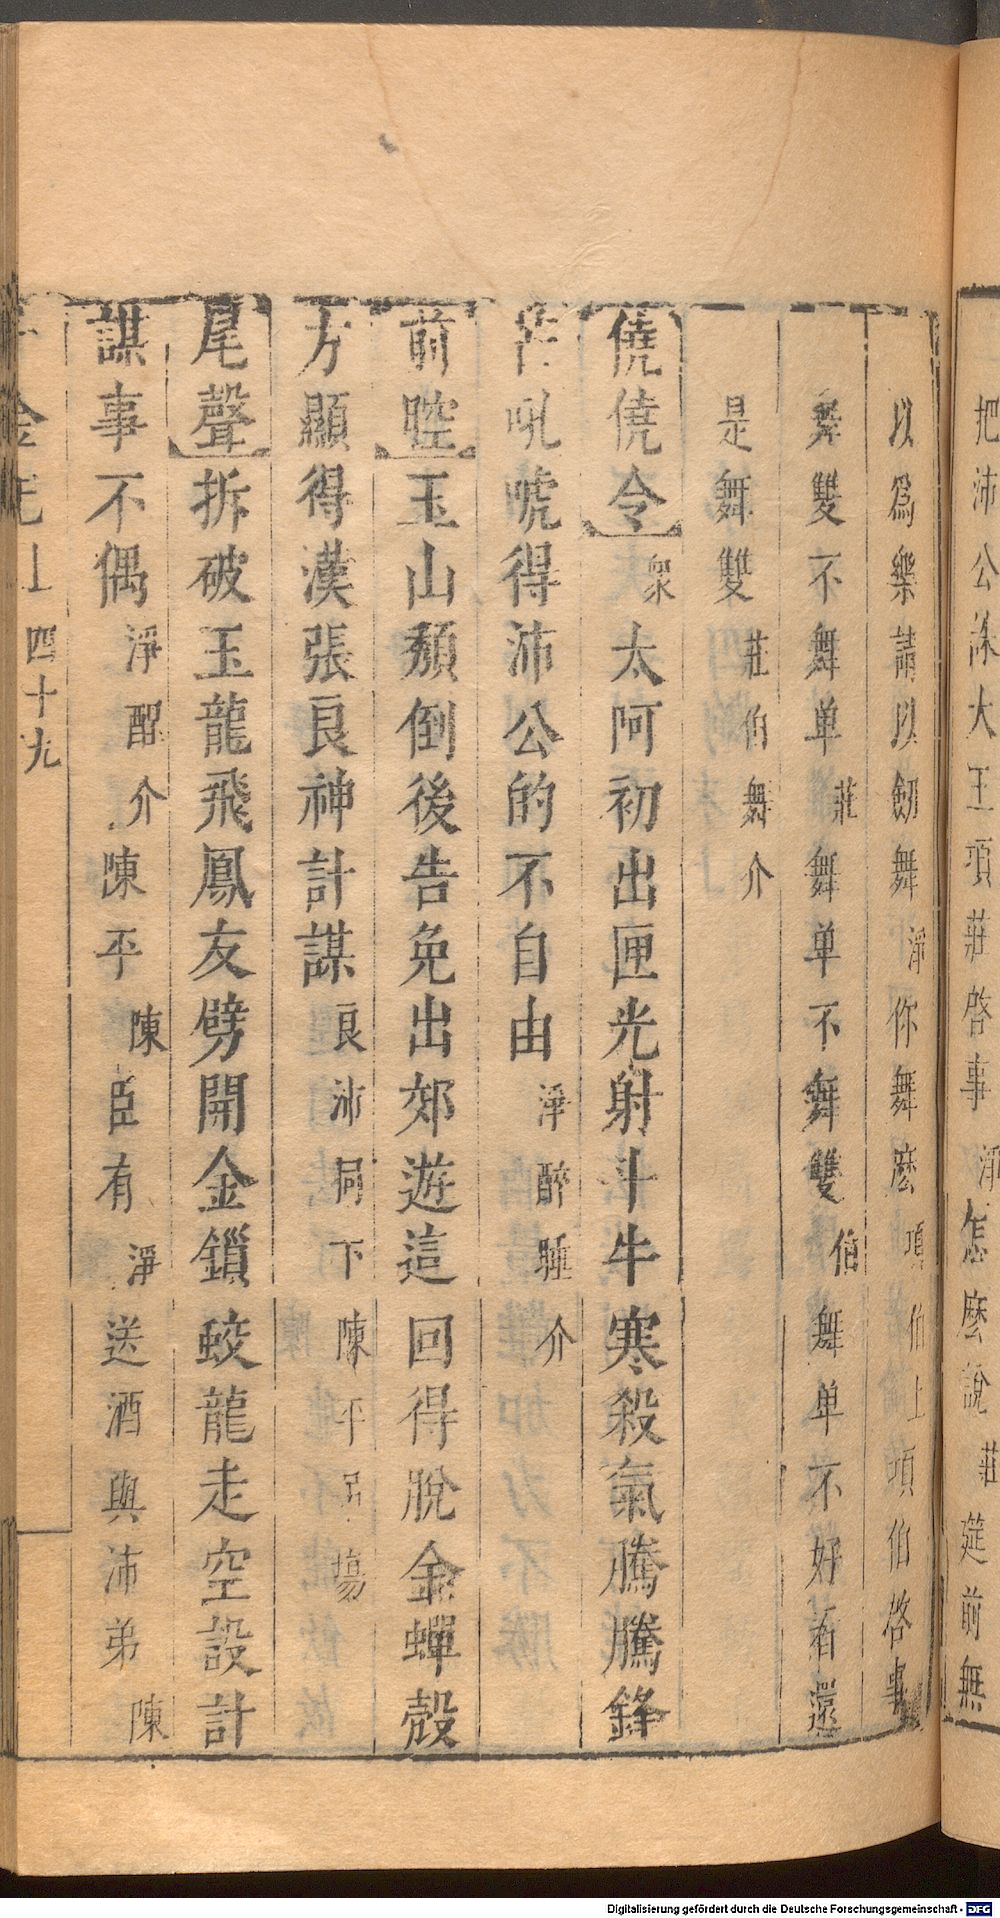 把沛公誅大王項莊啓事淨怎麽說莊筵前無
以爲樂請以劒舞淨你舞麽項伯上項伯啓事
舞雙不舞单莊舞单不舞雙伯舞单不好看還
是舞雙莊伯舞介
僥僥令衆太阿初出匣光射斗牛寒殺氣騰騰鋒
吼唬得沛公的不自由淨醉睡介
前腔玉山頹倒後告免出郊遊這回得脫金蟬殼
方顯得漢張良神計謀良沛同下陳平吊塲
尾聲拆破玉龍飛鳳友劈開金鎖蛟龍走空設計
謀事不偶淨酩介陳平陳臣有淨送酒與沛弟陳
千金記上 四十九
Digitalisierung gefördert durch die Deutsche Forschungsgemeinschaft - DFG